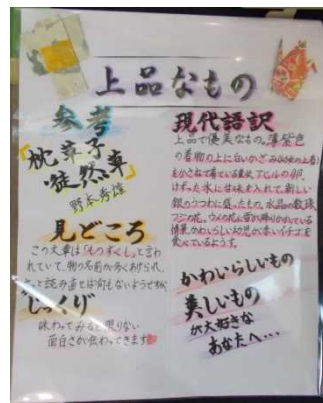 上品なもの
参考
『枕草子
・徒然草』
野本秀雄
見どころ
この文章は「ものづくし」と言わ
れていて、物の名前が多くあげられ、
味わってみると限りない
面白さが伝わってきます
現代語訳
上品で優美なもの。薄紫色
の着物の上に白いかざみ
を重ねて着ている童女。アヒルの卵。
けずった氷に甘味を入れて、新しい
銀のうつわに盛ったもの。水晶の数珠。
フジの花。ウメの花に雪が降りかかっている
情景。かわいらしい幼児が赤いイチゴを
食べているようす。
かわいらしいもの
美しいもの
が大好きな
あなたへ…